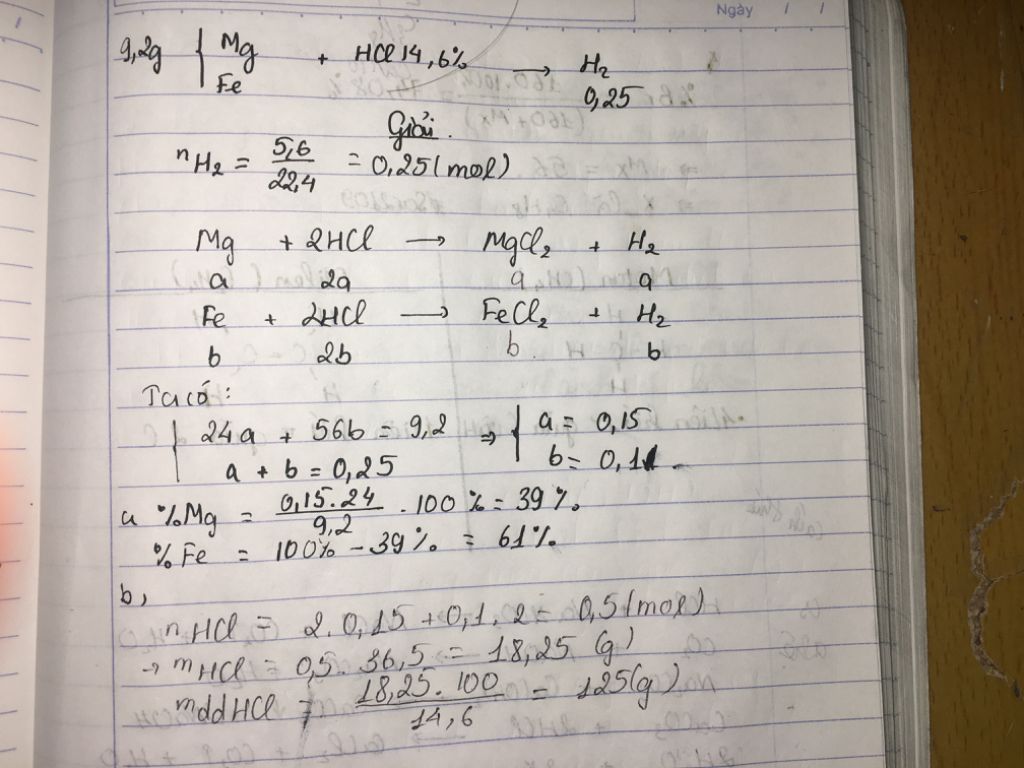 Ngày / /
9,2g { Mg + HCl 14,6% → H₂
Fe 0,25
Giải.
nH₂ = 5,6/22,4 = 0,25 (mol)
Mg + 2HCl → MgCl₂ + H₂
a 2a a a
Fe + 2HCl → FeCl₂ + H₂
b 2b b b
Ta có:
{ 24a + 56b = 9,2 ⇒ { a = 0,15
a + b = 0,25 b = 0,1
a %Mg = 0,15.24/9,2 . 100% = 39%
%Fe = 100% - 39% = 61%
b,
nHCl = 2.0,15 + 0,1.2 = 0,5 (mol)
→ mHCl = 0,5.36,5 = 18,25 (g)
mddHCl = 18,25.100/14,6 = 125(g)